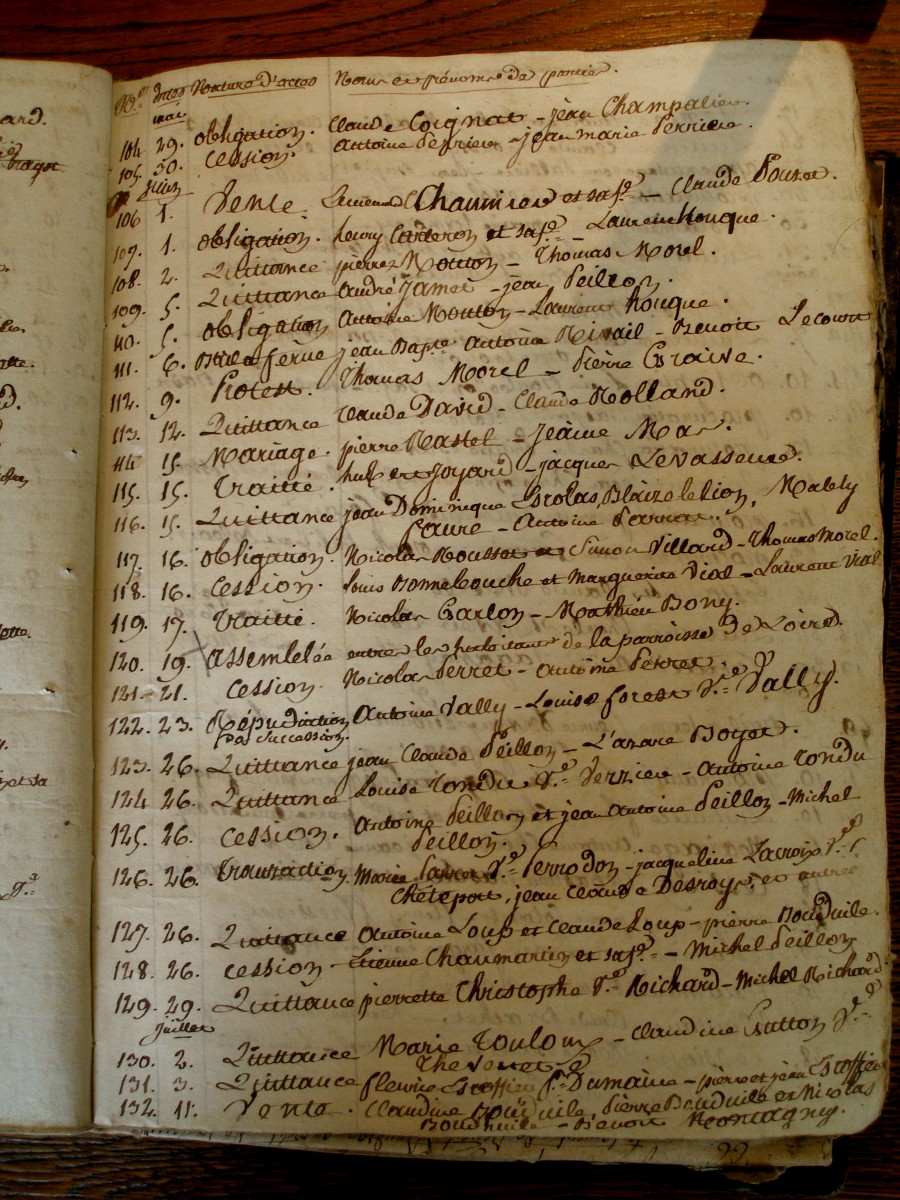 ard.
N.os dates Nature d'actes Noms et prénoms des parties.
mai.
104 29. obligation. Claude Coignat - jean Champalier.
105. 30. Cession. Antoine Perrier - jean marie Perriere.
juin
106 1. Vente. Chaumier et sa fe. - Claude Pouzet.
107. 1. obligation. henry Carteron et sa fe. - Laurent houque.
108. 2. Quittance pierre Mouton - Thomas Morel.
109. 5. Quittance andré Jamet - jean Peillon.
110. 5. obligation Antoine Mouton - Laurent houque.
111. 6. Bail a ferme jean Bapte. antoine Rivail - Benoit Lecourt
112. 9. Protest. Thomas Morel - Pierre Graive.
113. 12. Quittance Claude David - Claude Rolland.
114 15. Mariage. pierre Rastel - Jeanne Mas.
115. 15. Traitté. hubert Joyard - jacques Levasseur.
116. 15. Quittance jean Dominique Escolas, Blaize le lion, Mably
faure - Antoine
117. 16. obligation. Nicolas Rousset Simon Villard - Thomas Morel.
118. 16. Cession. Louis Bonnebouche et Marguerite Vial - Laurent Vial
119. 17. Traitté. Nicolas Carlon - Mathieu Bony.
120. 19. assemblée entre les habitants de la parroisse de Loire.
121. 21. Cession. Nicolas Perret - Antoine Perret.
122. 23. Répudiation Antoine Vally - Louise forest Ve. Vally.
de succession.
123. 26. Quittance jean Claude Peillon - L'azare Boyet.
124 26. Quittance Louise Tondu Ve. Verzieu - Antoine Tondu
125. 26. Cession. Antoine Peillon et jean Antoine Peillon - Michel
Peillon.
126. 26. Transaction Marie Ve. Perrodon - jacqueline Lacroix Ve.
jean Claude Desroys, et autres
127. 26. Quittance Antoine Loup et Claude Loup - pierre Bouduile.
128. 26. cession - Etienne Chaumartin et sa fe. - Michel Peillon
129. 29. Quittance pierrette Christophe Ve. Richard - Michel Richard
juillet
130. 2. Quittance Marie Toulon - Claudine Gutton Ve.
Thevenet
131. 3. Quittance fleurie Escoffier fe. Dumaine - pierre et jean Escoffier
132. 11. Vente. Claudine Bouduile, Pierre Bouduile et Nicolas
Bouduile - Benoit Montagny.